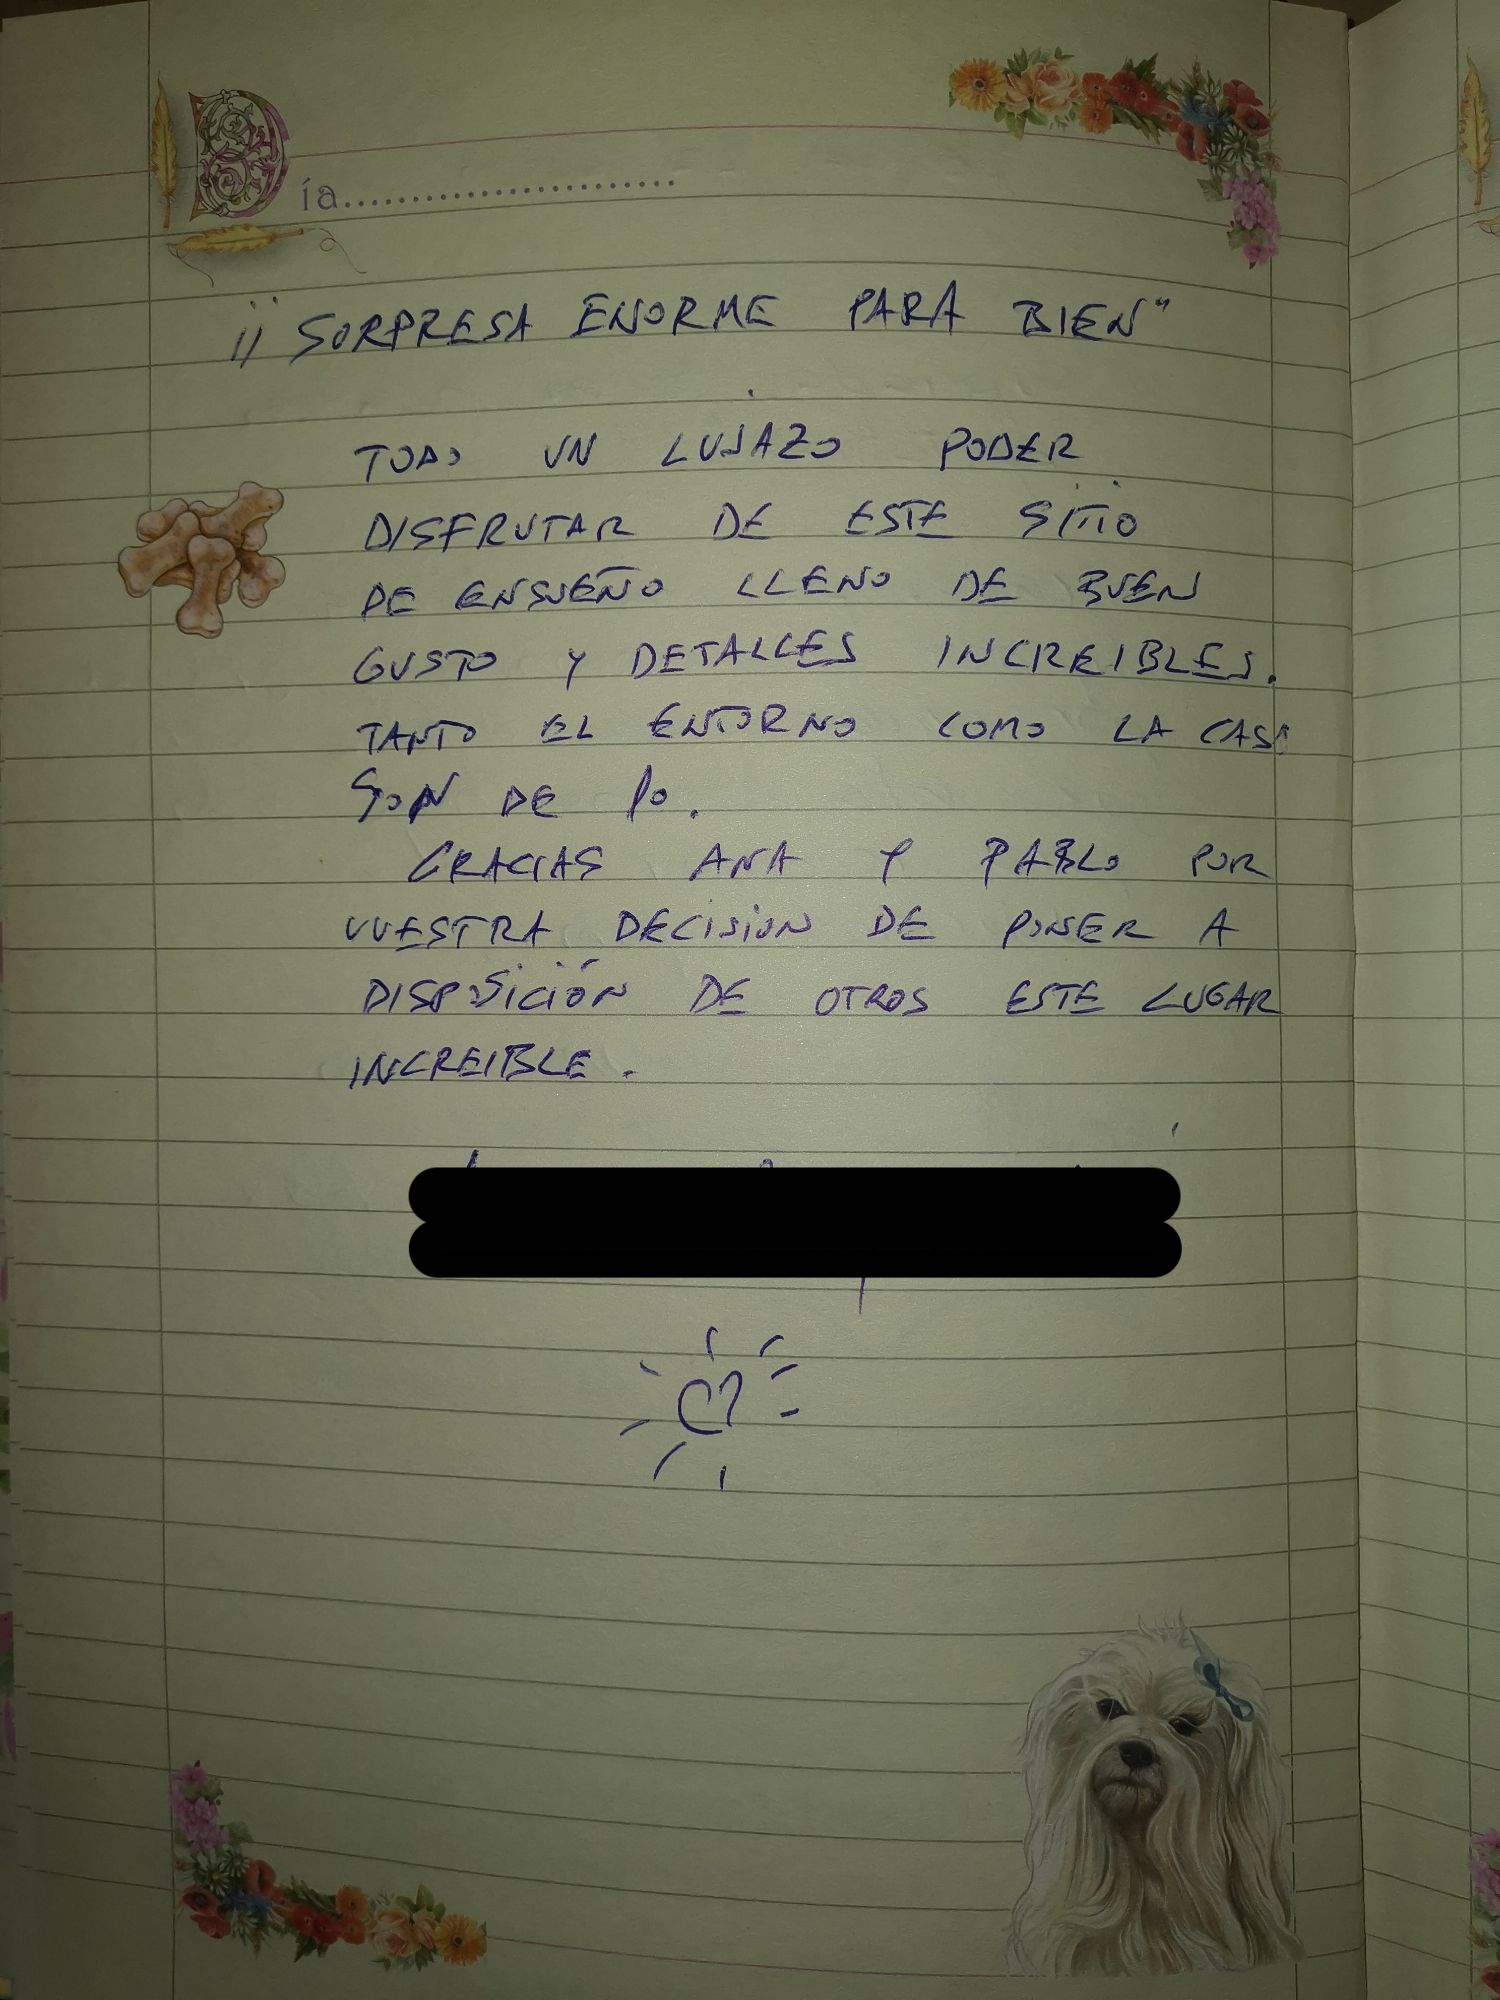 Día........................
¡¡ SORPRESA ENORME PARA BIEN"
TODO UN LUJAZO PODER
DISFRUTAR DE ESTE SITIO
DE ENSUEÑO LLENO DE BUEN
GUSTO Y DETALLES INCREIBLES.
TANTO EL ENTORNO COMO LA CASA
SON DE 10.
GRACIAS ANA Y PABLO POR
VUESTRA DECISION DE PONER A
DISPOSICIÓN DE OTROS ESTE LUGAR
INCREIBLE.